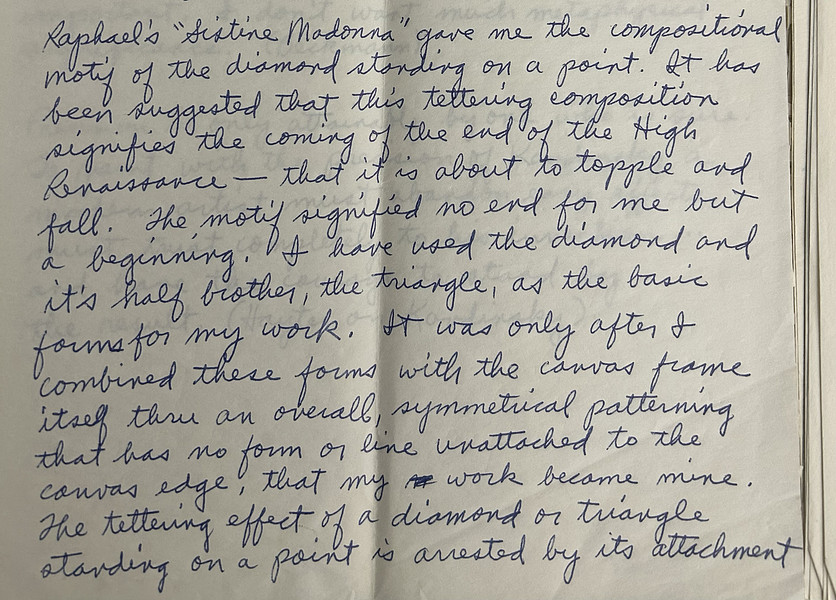 Raphael's "Sistine Madonna" gave me the compositional
motif of the diamond standing on a point. It has
been suggested that this tettering composition
signifies the coming of the end of the High
Renaissance — that it is about to topple and
fall. The motif signified no end for me but
a beginning. I have used the diamond and
it's half brother, the triangle, as the basic
forms for my work. It was only after I
combined these forms with the canvas frame
itself thru an overall, symmetrical patterning
that has no form or line unattached to the
canvas edge, that my work became mine.
The tettering effect of a diamond or triangle
standing on a point is arrested by its attachment